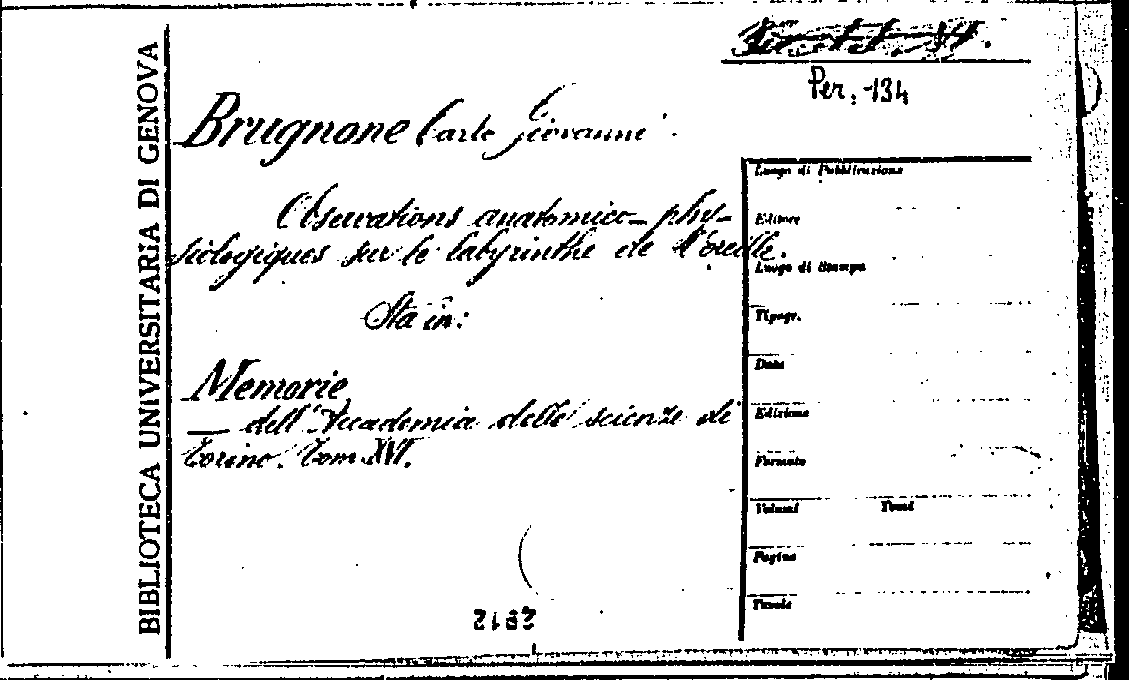 BIBLIOTECA UNIVERSITARIA DI GENOVA
Per. 134
Brugnone Carlo Giovanni
Observations anatomico-phy-
siologiques sur le labyrinthe de l'oreille.
Sta in:
Memorie
— dell'Accademia delle scienze di
Torino. Tom XVI.
Luogo di Pubblicazione
Editore
Luogo di Stampa
Tipogr.
Data
Edizione
Formato
Volumi Tomi
Pagine
Tavole